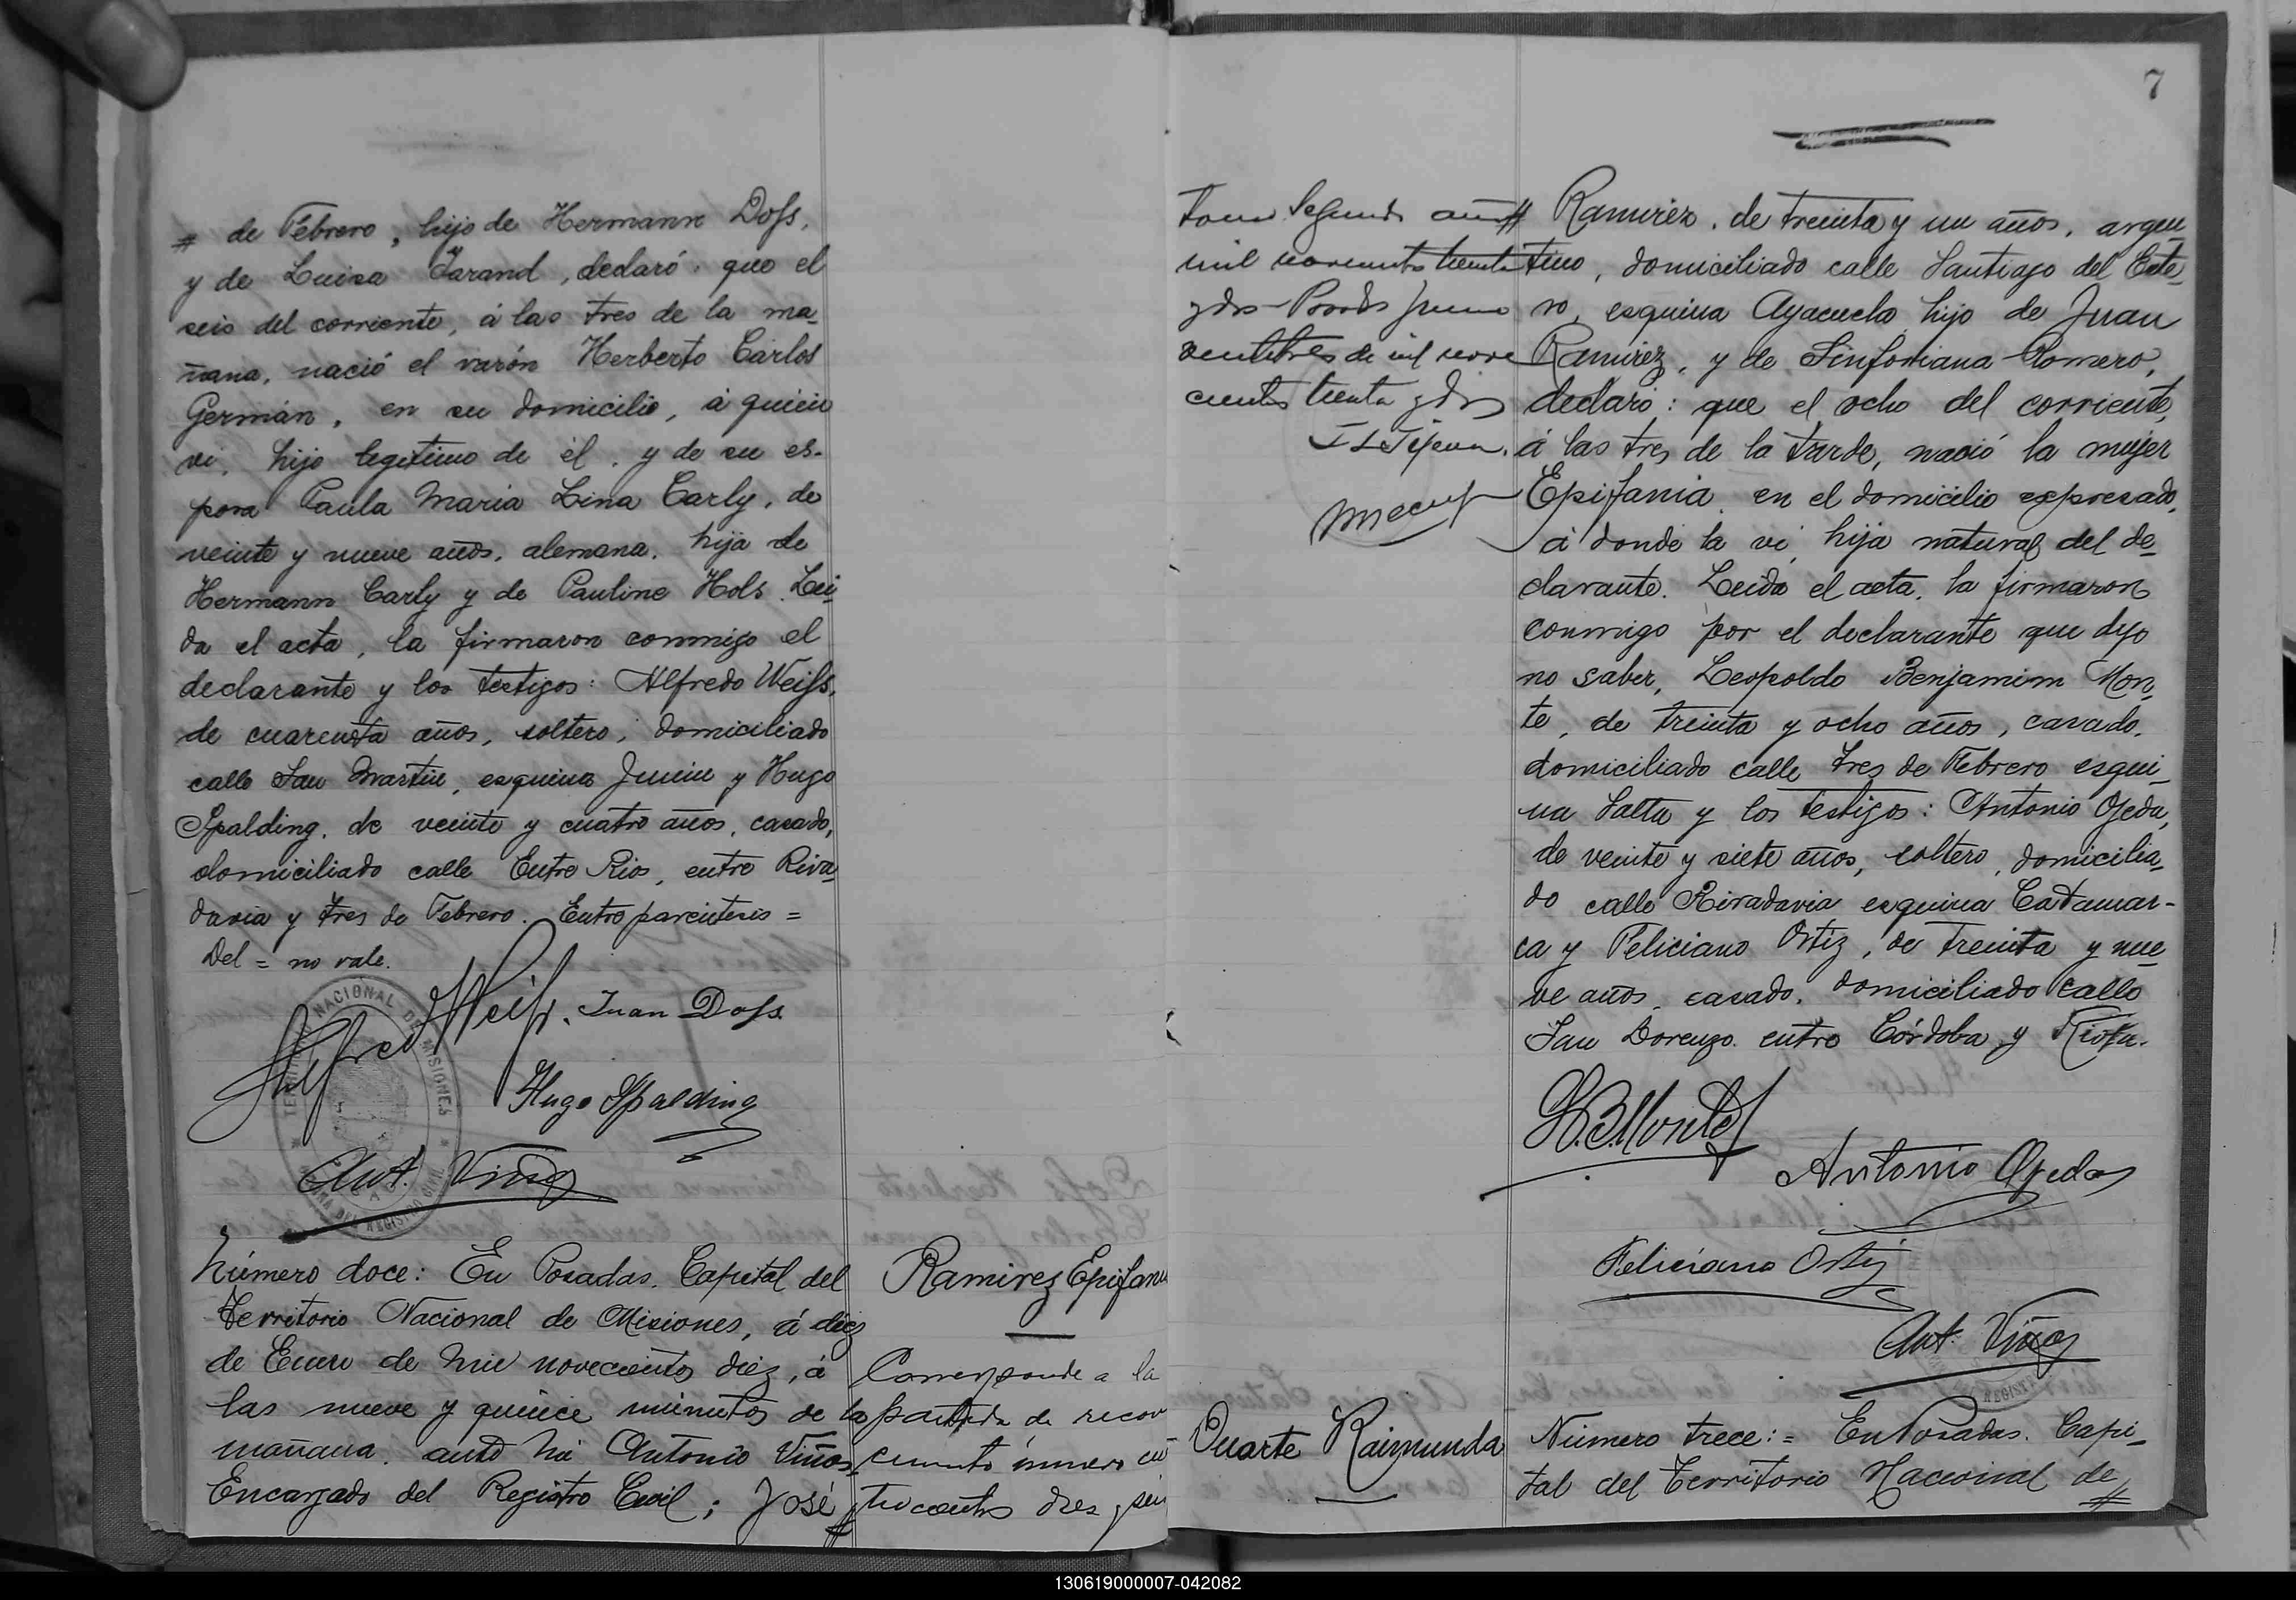 # de Febrero, hijo de Hermann Dofs,
y de Luisa Tarand, declaró: que el
seis del corriente, á las tres de la ma-
ñana, nació el varón Herberto Carlos
Germán, en su domicilio, á quien
vi, hijo legítimo de él, y de su es-
posa Paula Maria Lina Carly, de
veinte y nueve años, alemana, hija de
Hermann Carly y de Pauline Hols. Lei-
da el acta, la firmaron conmigo el
declarante y los testigos: Alfredo Weifs,
de cuarenta años, soltero, domiciliado
calle San Martin, esquina Junin y Hugo
Spalding, de veinte y cuatro años, casado,
domiciliado calle Entre Rios, entre Riva-
davia y tres de Febrero. Entre parentesis =
Del = no vale.
Alfredo Weifs. Juan Dofs
Hugo Spalding
TERRITORIO NACIONAL DE MISIONES
DEL REGISTRO CIVIL
Ant. Viñas
Número doce: En Posadas, Capital del
Territorio Nacional de Misiones, á diez
de Enero de mil novecientos diez, á
las nueve y quince minutos de la
mañana, ante mi Antonio Viñas,
Encargado del Registro Civil; José #
Ramirez Epifania
Corresponde a la
partida de recono
cimiento número cua
trocientos dies y seis
7
tomo segundo año #
mil novecientos treinta
y dos - Posadas Junio
veintitres de mil nove
cientos treinta y dos
Ramirez, de treinta y un años, argen-
tino, domiciliado calle Santiago del Este-
ro, esquina Ayacucho, hijo de Juan
Ramirez, y de Sinforiana Romero,
declaró: que el ocho del corriente,
á las tres de la tarde, nació la mujer
Epifania, en el domicilio expresado,
á donde la vi, hija natural del de-
clarante. Leida el acta, la firmaron
conmigo por el declarante que dijo
no saber, Leopoldo Benjamim Mon-
te, de treinta y ocho años, casado,
domiciliado calle tres de Febrero esqui-
na Salta y los testigos: Antonio Ojeda,
de veinte y siete años, soltero, domicilia-
do calle Rivadavia esquina Catamar-
ca y Feliciano Ortiz, de treinta y nue-
ve años, casado, domiciliado calle
San Lorenzo entre Córdoba y Rioja.
L. B. Monte
Antonio Ojeda
Feliciano Ortiz
Ant. Viñas
Duarte Raimunda
Número trece: = En Posadas, Capi-
tal del Territorio Nacional de #
130619000007-042082